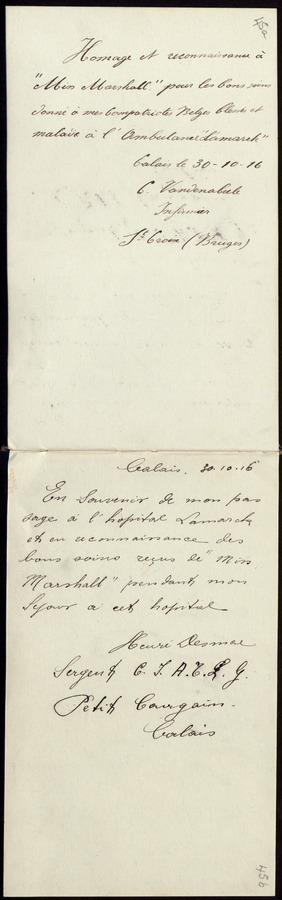 45a
Homage et reconnaissance à
"Miss Marshall" pour les bons soins
donné à mes Compatriotes Belges blessés et
malade à l'Ambulance "Lamarck"
Calais le 30-10-16
C. Vandenabeele
Infirmier
Ste Croix (Bruges)
Calais. 30.10.16
En Souvenir de mon pas
sage à l'hopital Lamarck
et en reconnaissance des
bons soins reçus de "Miss
Marshall" pendant mon
Sejour a cet hopital
Henri Desmae
Sergent C. I. A. C. L. G.
Petit Courgain.
Calais
45b